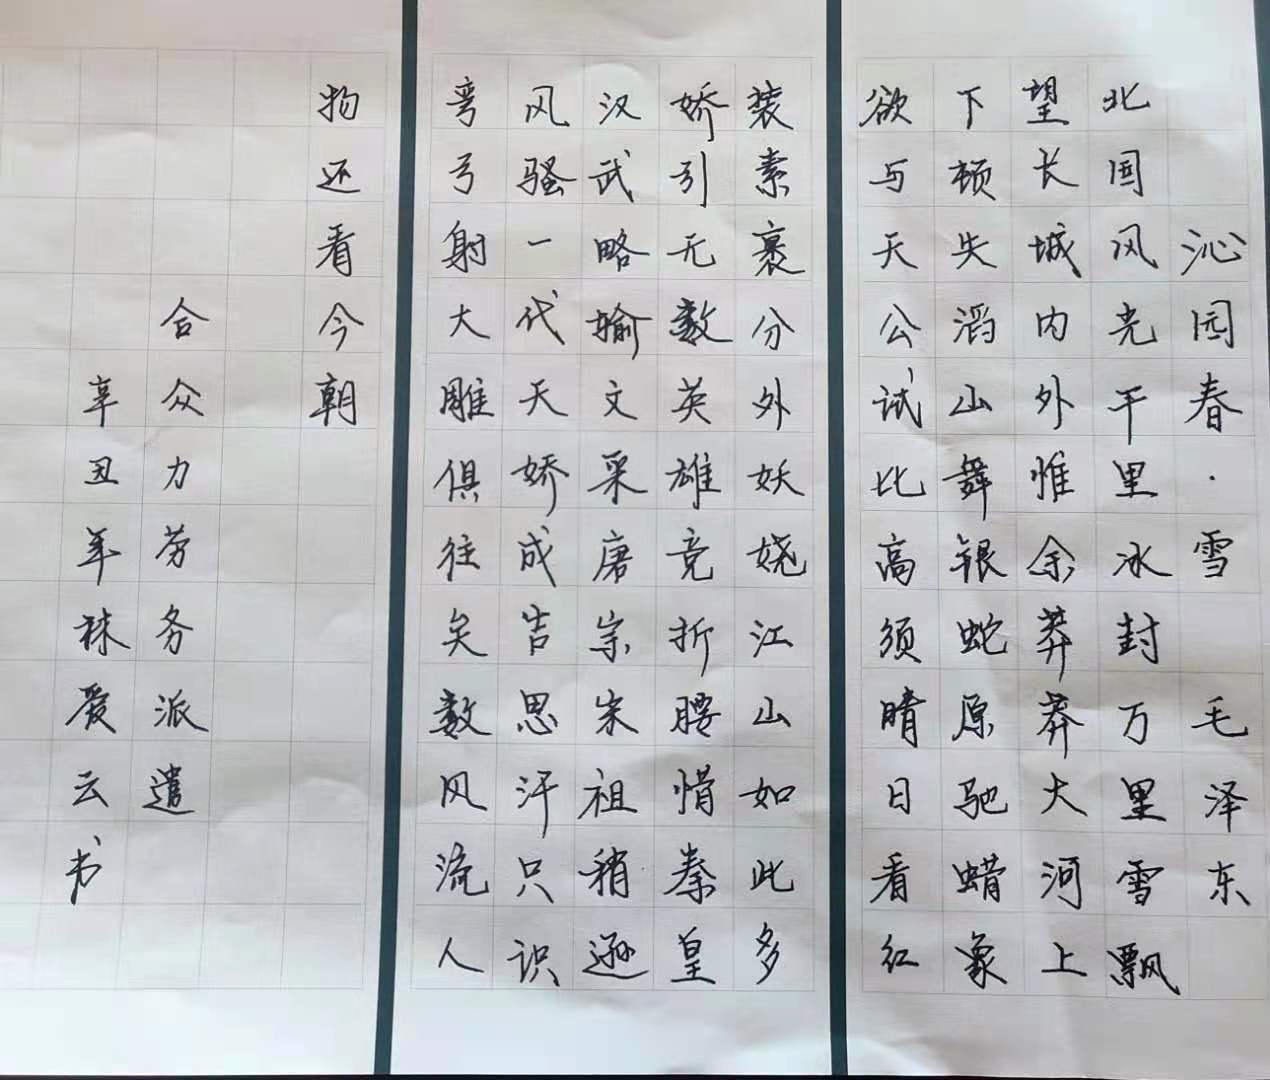 沁园春·雪 毛泽东
北国风光千里冰封万里雪飘
望长城内外惟余莽莽大河上
下顿失滔山舞银蛇原驰蜡象
欲与天公试比高须晴日看红
装素裹分外妖娆江山如此多
娇引无数英雄竞折腰惜秦皇
汉武略输文采唐宗宋祖稍逊
风骚一代天娇成吉思汗只识
弯弓射大雕俱往矣数风流人
物还看今朝
合众力劳务派遣
辛丑年爱云书